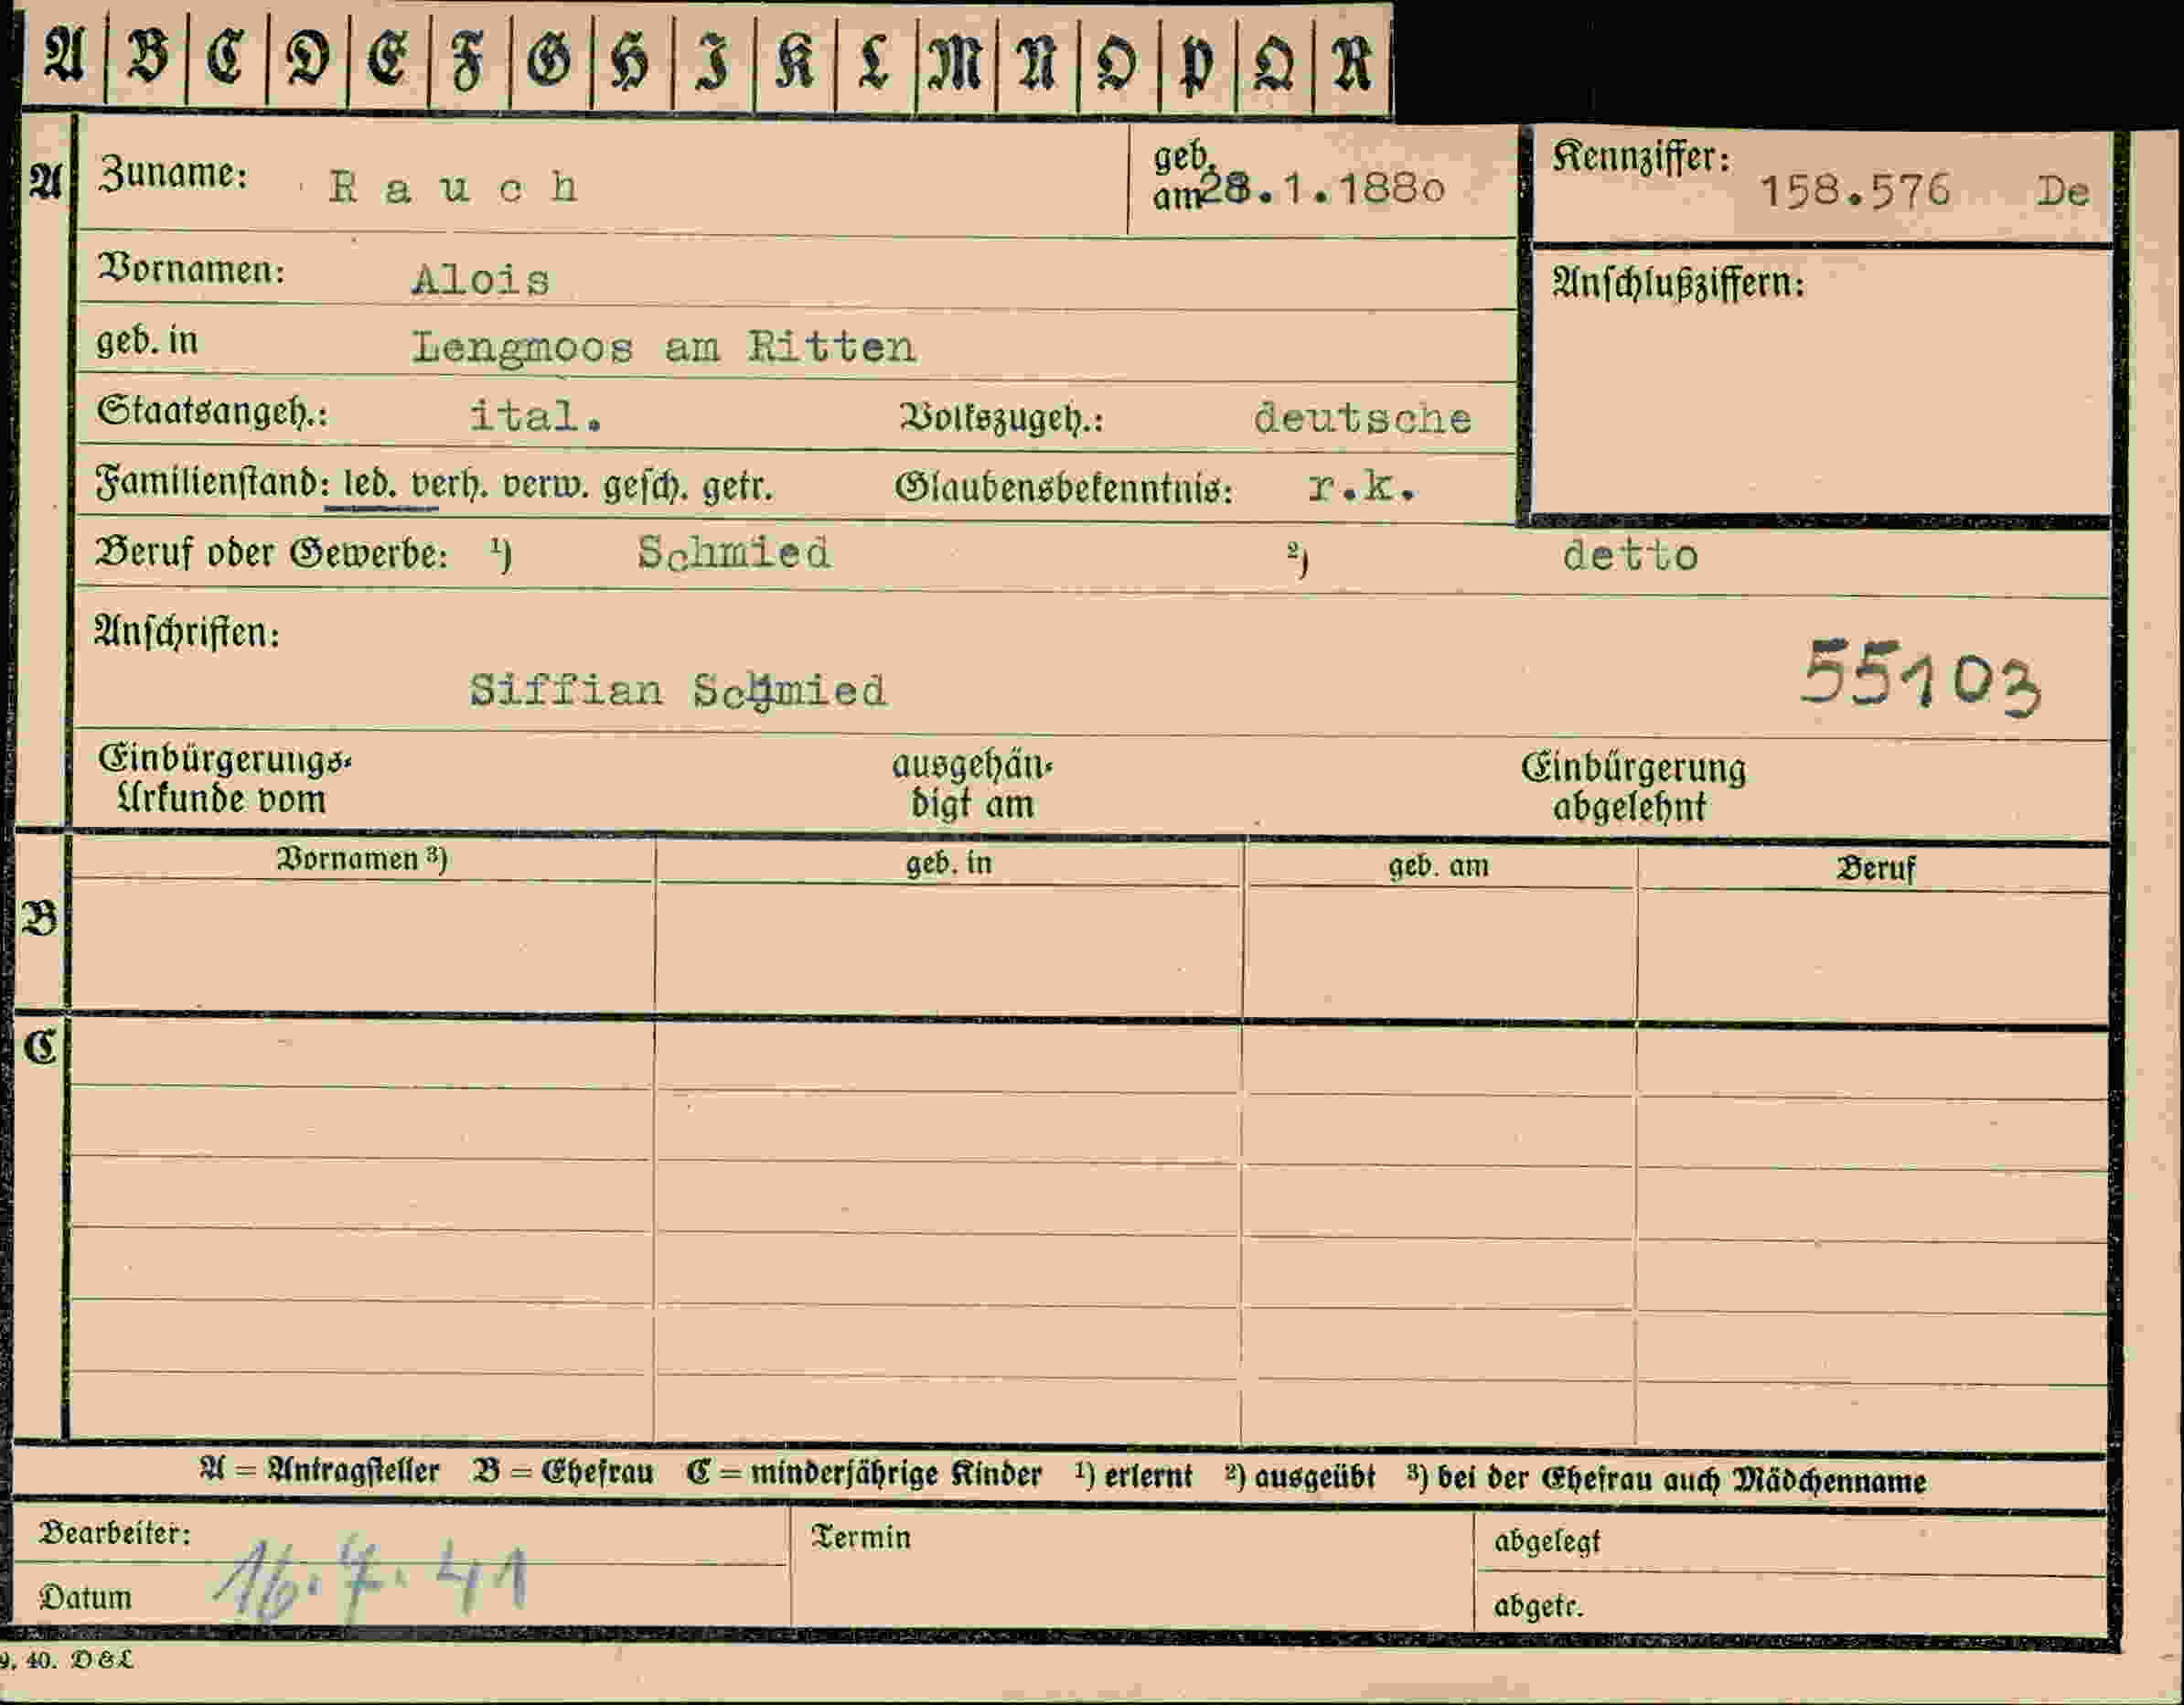 A B C D E F G H I K L M N O P Q R
A Zuname: Rauch geb. am 28.1.1880 Kennziffer: 158.576 De
Vornamen: Alois Anschlußziffern:
geb. in Lengmoos am Ritten
Staatsangeh.: ital. Volkszugeh.: deutsche
Familienstand: led. verh. verw. gesch. getr. Glaubensbekenntnis: r.k.
Beruf oder Gewerbe: ¹) Schmied ²) detto
Anschriften:
Siffian Schmied 55103
Einbürgerungs- ausgehän- Einbürgerung
Urkunde vom digt am abgelehnt
Vornamen ³) geb. in geb. am Beruf
B
C
A = Antragsteller B = Ehefrau C = minderjährige Kinder ¹) erlernt ²) ausgeübt ³) bei der Ehefrau auch Mädchenname
Bearbeiter: Termin abgelegt
Datum 16.7.41 abgetr.
9. 40. D & L